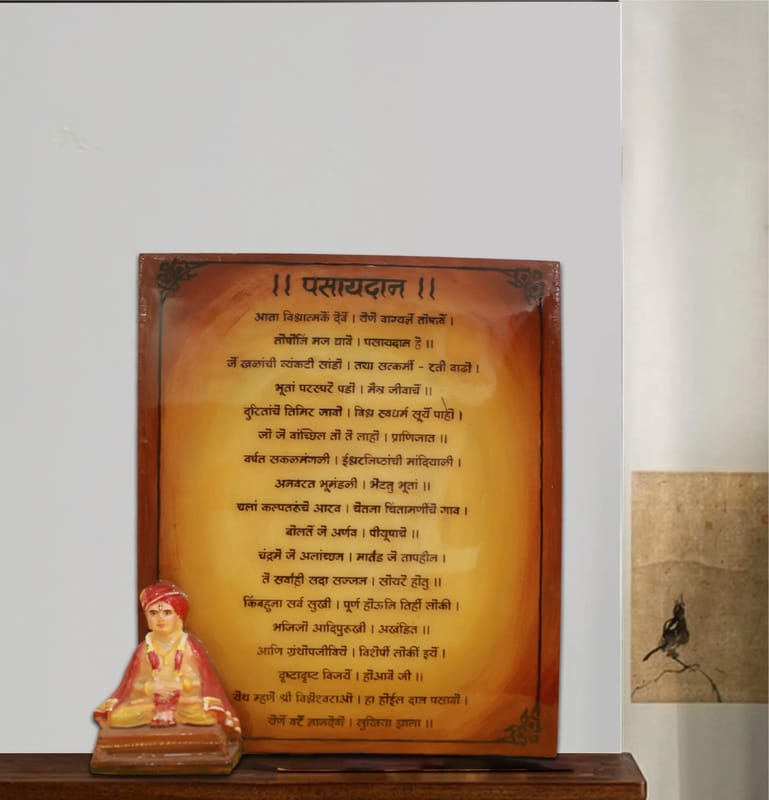 ।। पसायदान ।।
आता विश्वात्मकें देवें । येणे वाग्यज्ञें तोषावें ।
तोषोनि मज द्यावे । पसायदान हे ।।
जें खळांची व्यंकटी सांडो । तया सत्कर्मी - रती वाढो ।
भूतां परस्परे पडो । मैत्र जीवाचें ।।
दुरितांचे तिमिर जावो । विश्व स्वधर्म सूर्यें पाहो ।
जो जे वांच्छिल तो तें लाहो । प्राणिजात ।।
वर्षत सकळमंगळी । ईश्वरनिष्ठांची मांदियाळी ।
अनवरत भूमंडळी । भेटतु भूतां ।।
चलां कल्पतरूंचे आरव । चेतना चिंतामणींचे गाव ।
बोलतें जे अर्णव । पीयूषाचे ।।
चंद्रमे जे अलांच्छन । मार्तंड जे तापहीन ।
ते सर्वांही सदा सज्जन । सोयरे होतु ।।
किंबहुना सर्व सुखी । पूर्ण होऊनि तिहीं लोकी ।
भजिजो आदिपुरुखी । अखंडित ।।
आणि ग्रंथोपजीविये । विशेषीं लोकीं इयें ।
दृष्टादृष्ट विजयें । होआवे जी ।।
येथ म्हणे श्री विश्वेश्वराओ । हा होईल दान पसावो ।
येणें वरें ज्ञानदेवो । सुखिया झाला ।।